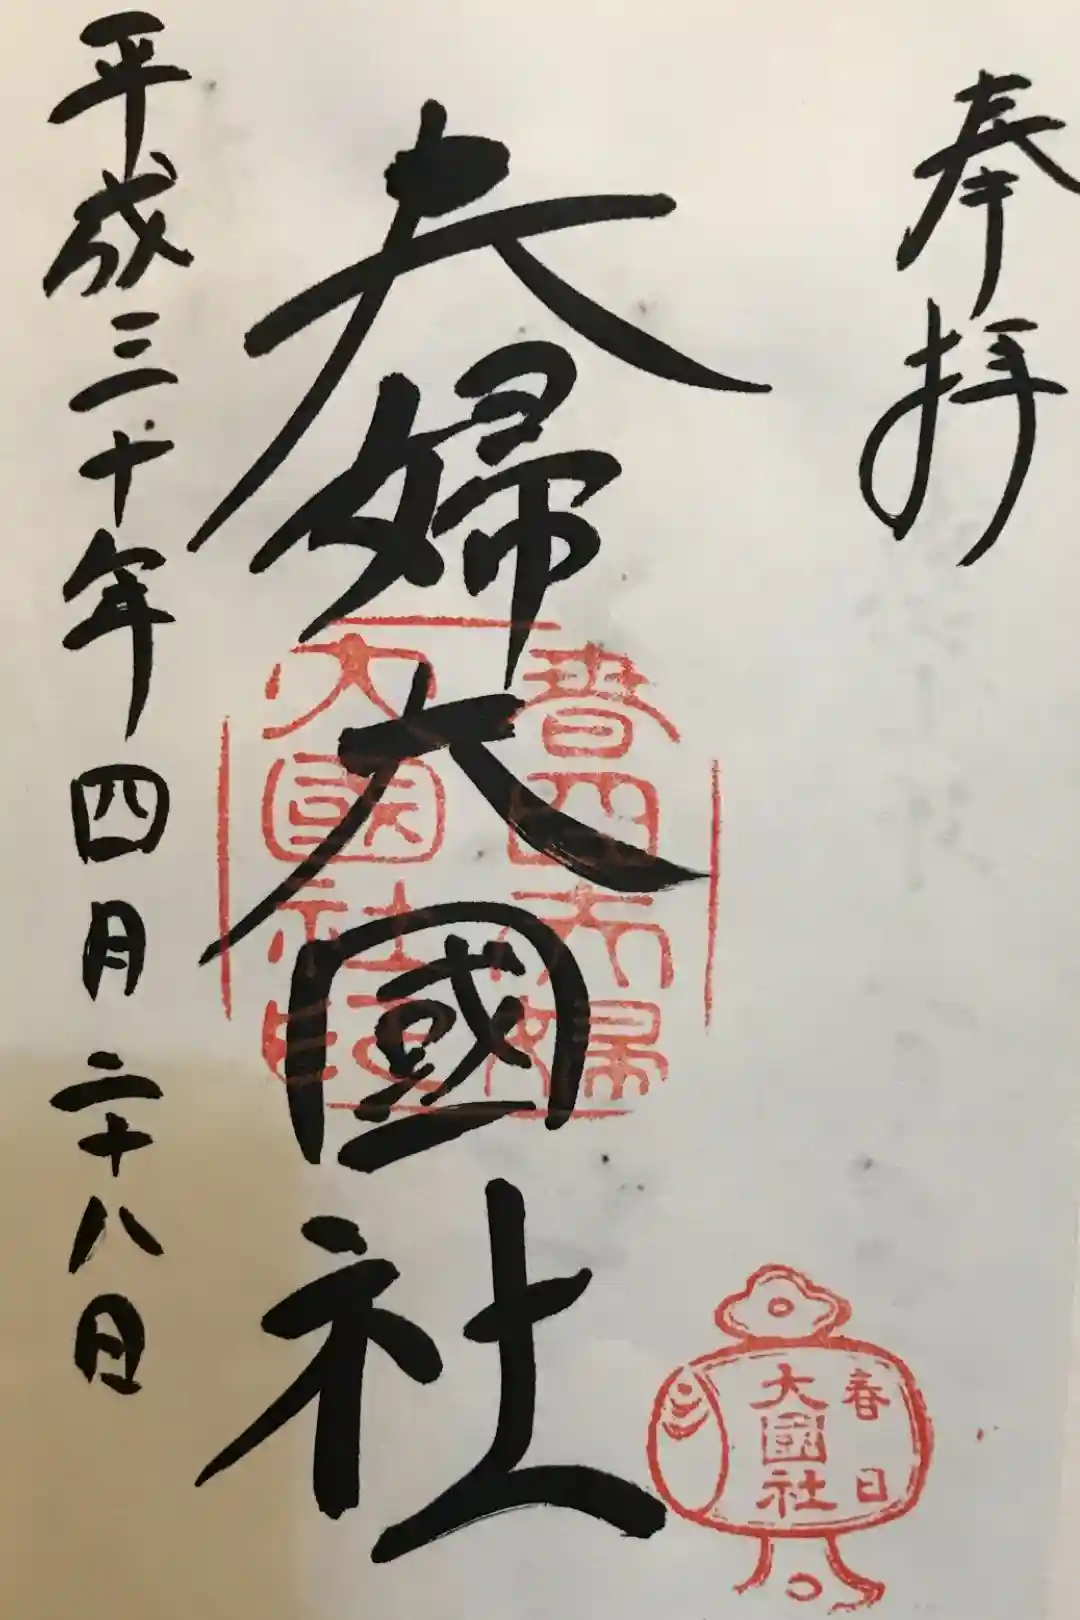 奉拝
夫婦大國社
平成三十年四月二十八日
春日夫婦
大國社印
春日
大國社